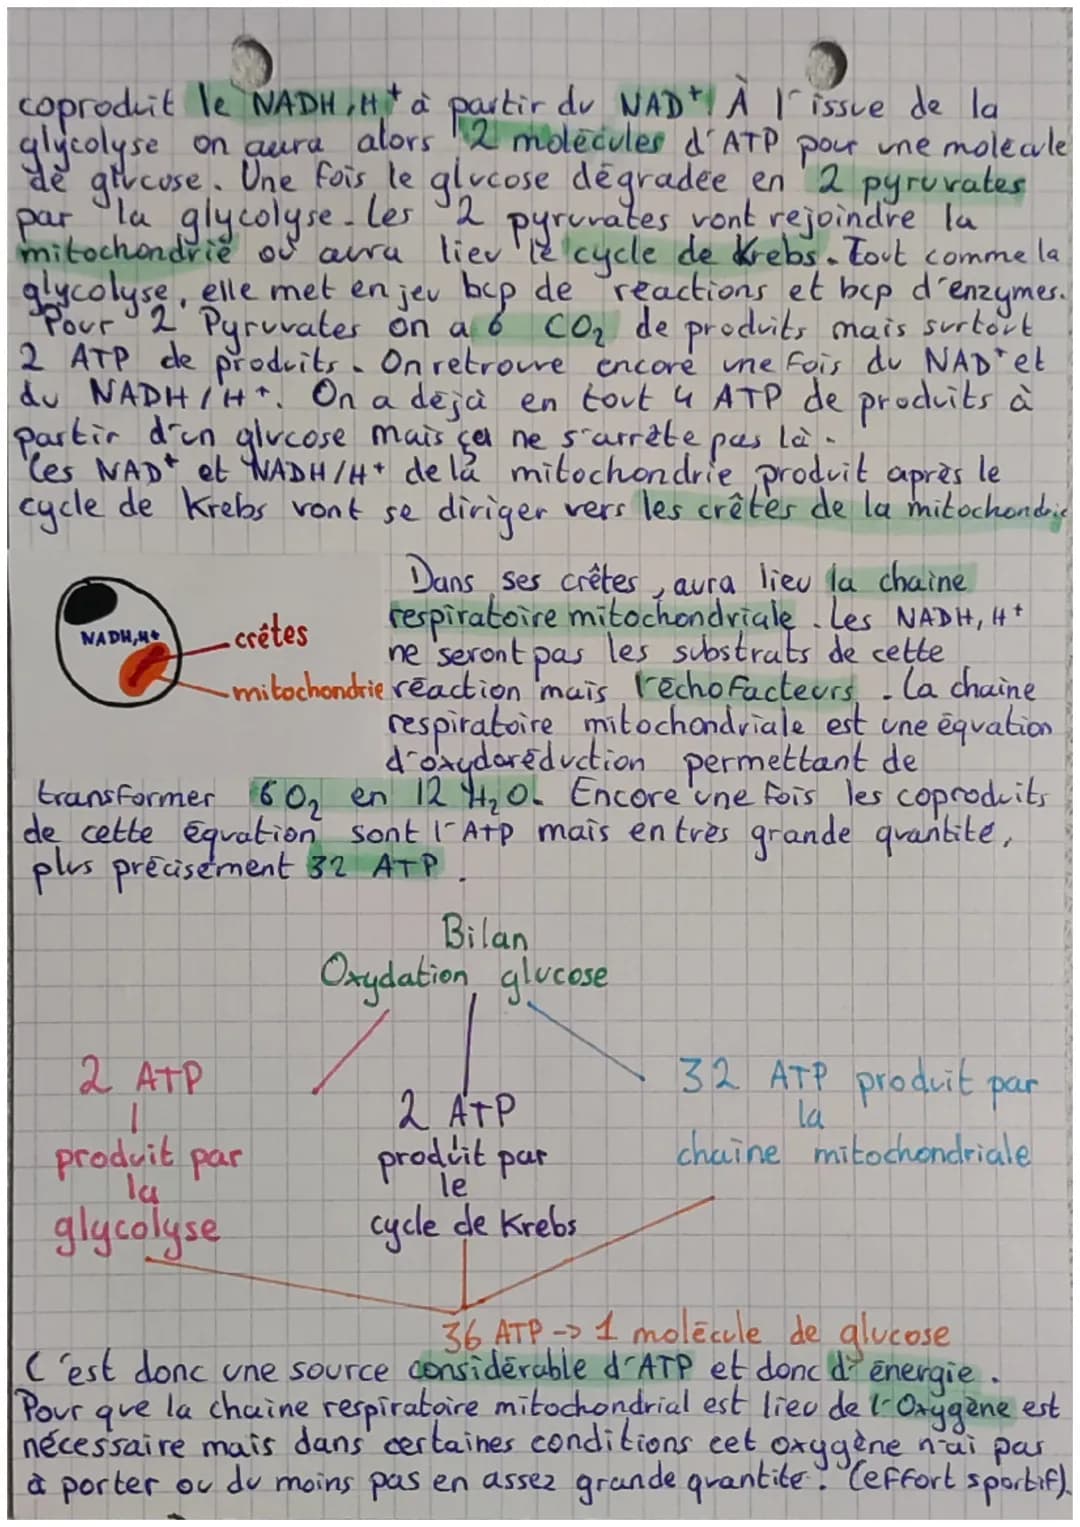 coproduit le NADH,H+ à partir du NAD+. À l'issue de la
glycolyse on aura alors 2 molécules d'ATP pour une molécule
de glucose. Une fois le glucose dégradée en 2 pyruvates
par la glycolyse. Les 2 pyruvates vont rejoindre la
mitochondrie où aura lieu le cycle de Krebs. Tout comme la
glycolyse, elle met en jeu bcp de réactions et bcp d'enzymes.
Pour 2 Pyruvates on a 6 CO₂ de produits mais surtout
2 ATP de produits. On retrouve encore une fois du NAD+ et
du NADH/H+. On a déjà en tout 4 ATP de produits à
partir d'un glucose mais ça ne s'arrête pas là.
Les NAD+ et NADH/H+ de la mitochondrie produit après le
cycle de Krebs vont se diriger vers les crêtes de la mitochondrie
Dans ses crêtes, aura lieu la chaine
respiratoire mitochondriale. Les NADH, H+
ne seront pas les substrats de cette
réaction mais l'échofacteurs. La chaine
respiratoire mitochondriale est une équation
d'oxydoréduction permettant de
NADH,H+
crêtes
mitochondrie
transformer 6 O₂ en 12 H₂O. Encore une fois les coproduits
de cette équation sont l'Atp mais en très grande quantité,
plus précisément 32 ATP.
Bilan
Oxydation glucose
2 ATP
produit par
la
glycolyse
2 ATP
produit par
le
cycle de Krebs
32 ATP produit par
la
chaîne mitochondriale
36 ATP -> 1 molécule de glucose
C'est donc une source considérable d'ATP et donc d'énergie.
Pour que la chaine respiratoire mitochondrial est lieu de l'Oxygène est
nécessaire mais dans certaines conditions cet oxygène n'ai pas
à porter ou du moins pas en assez grande quantité. (effort sportif).